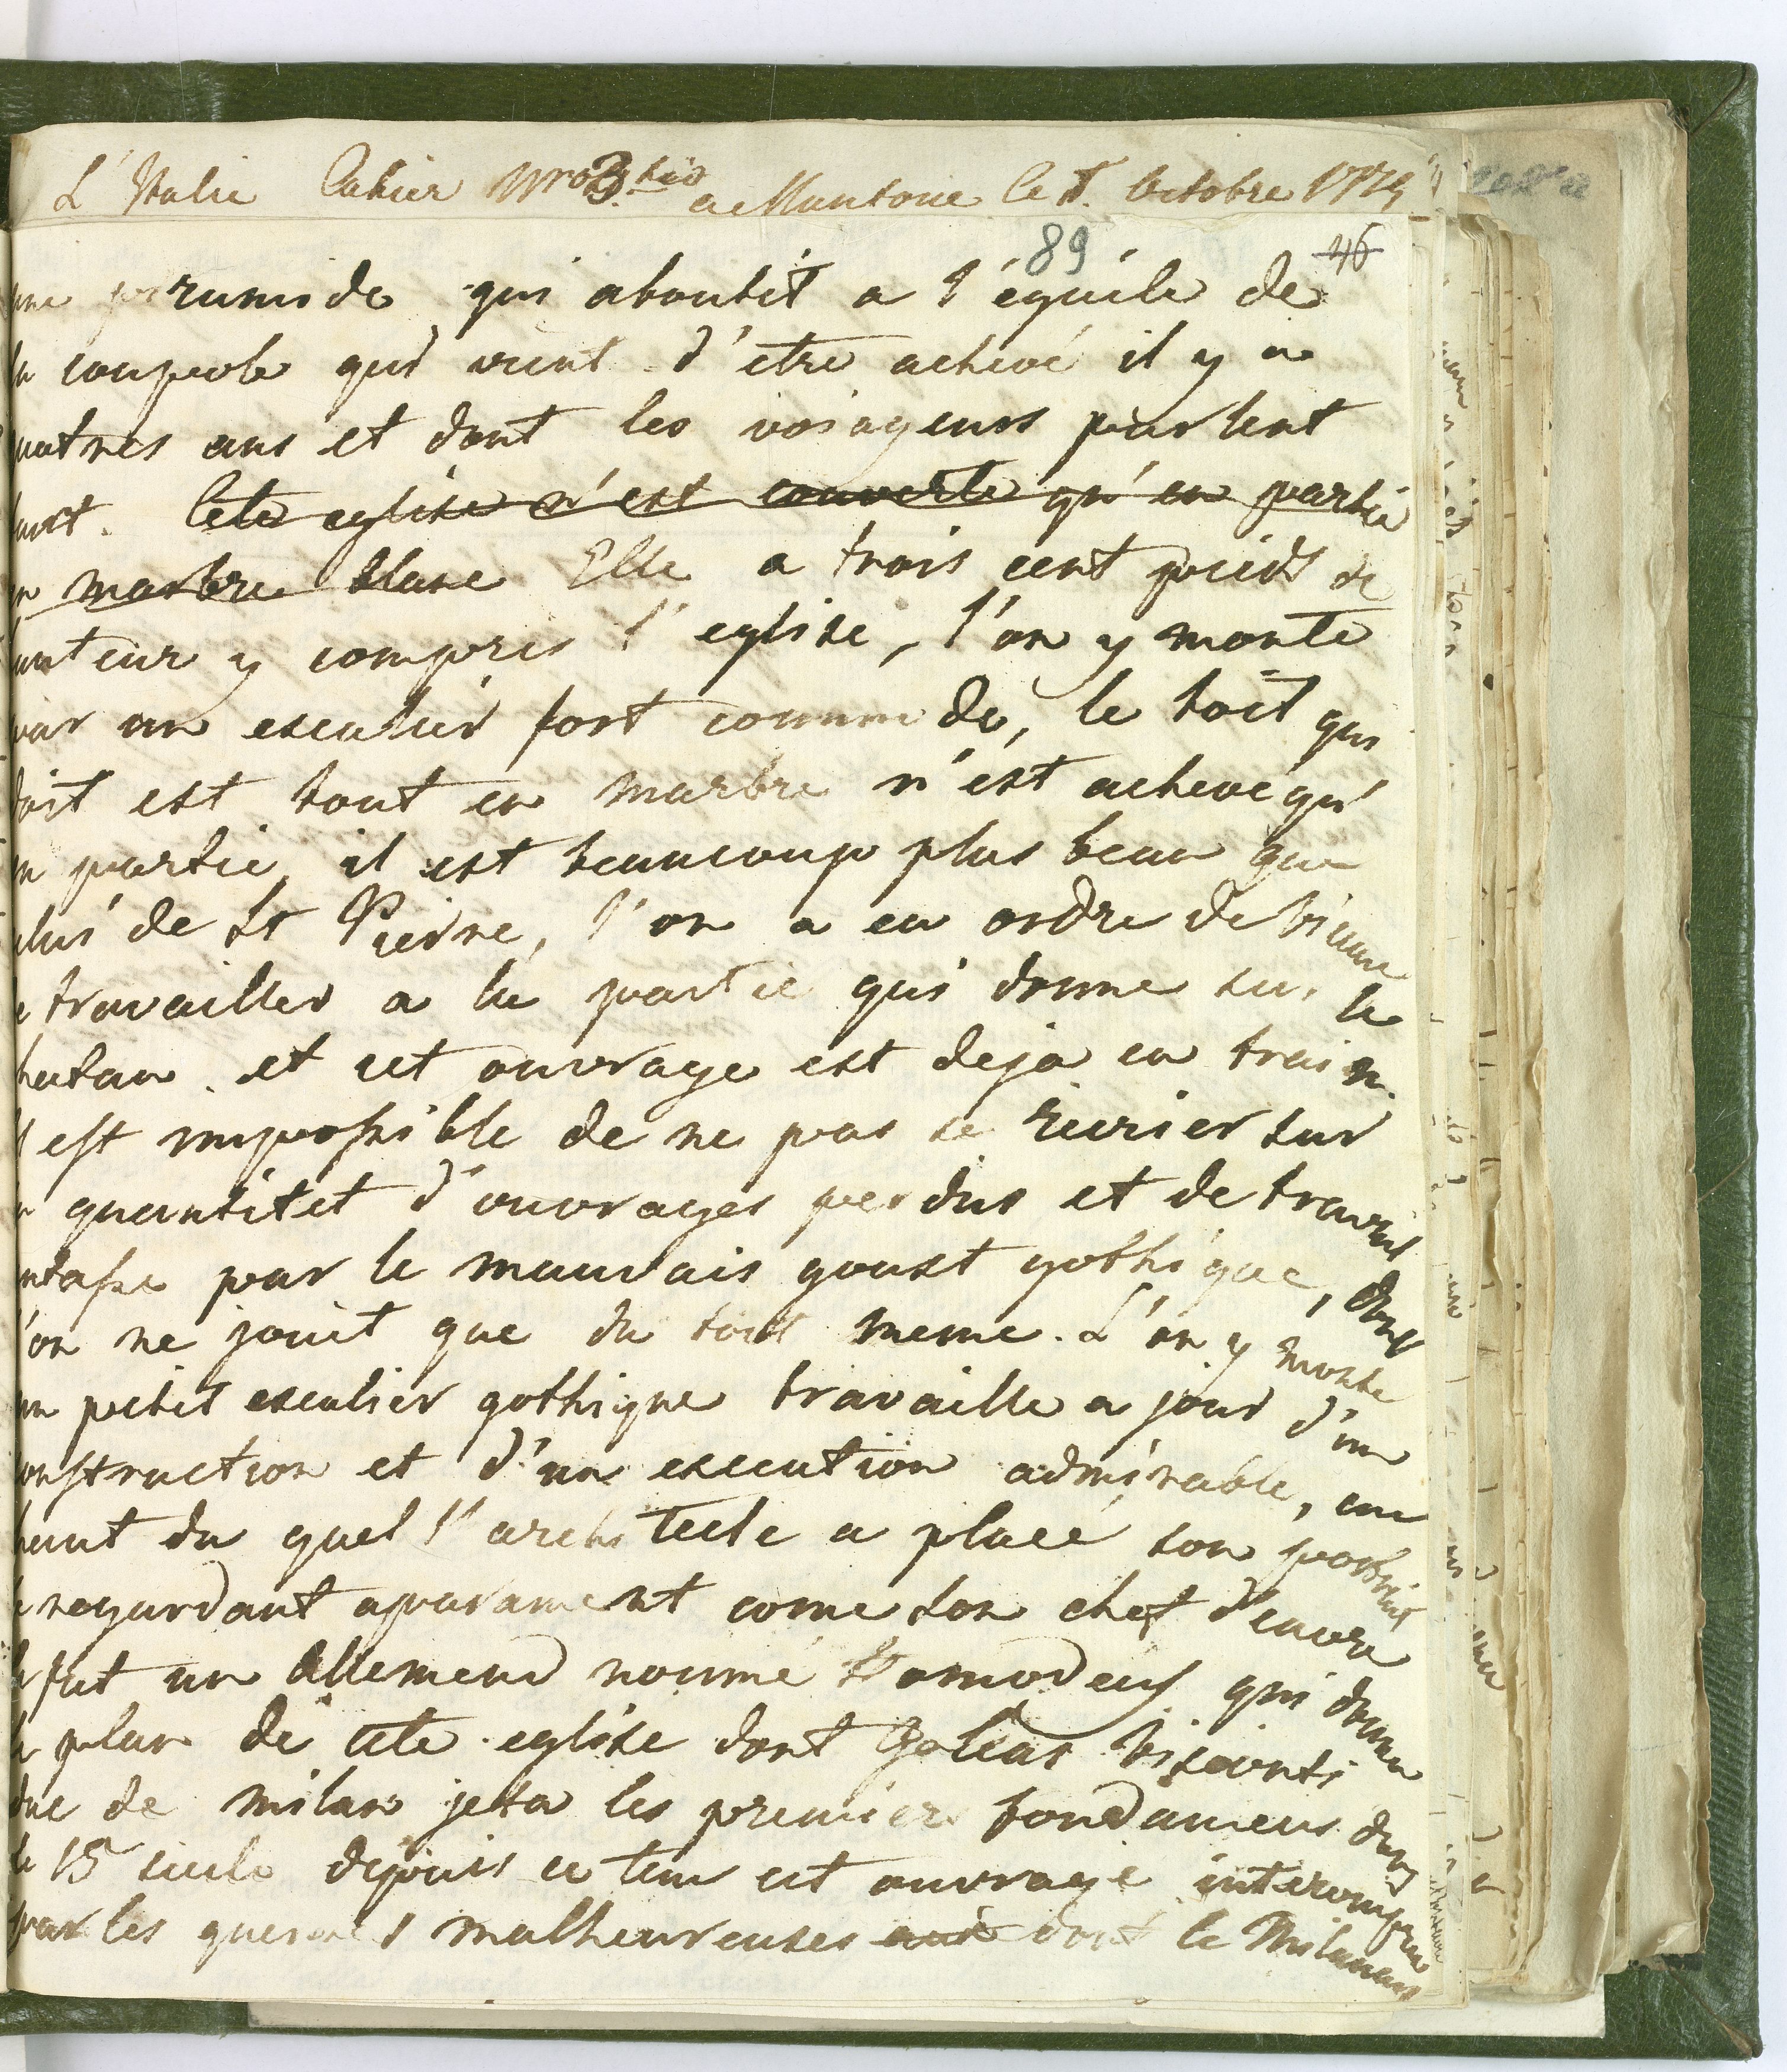 L'Italie Cahier Nro 3. tio a Mantoue le 8. Octobre 1774
89 46
une pirumide qui aboutit a l'éguile de
la coupole qui vient d'etre achevé il y a
quatres ans et dont les voiageurs parlent
tant. Cete eglise n'est couverte qu'en partie
en marbre blanc Elle a trois cent pieds de
hauteur y compris l'eglise, l'on y monte
par un escalier fort commode, le toit qui
doit est tout en marbre n'est achevé qu'
en partie, il est beaucoup plus beau que
celui de St Pierre, l'on a eu ordre de Vienne
de travailler a la partie qui donne sur le
et cet ouvrage est deja en train.
Il est impossible de ne pas se récrier sur
la quantitet d'ouvrages perdus et de travail
entasse par le mauvais goust gothique, dont
l'on ne jouit que du toit meme. L'on y monte
un petit escalier gothique travaille a jour d'un
construction et d'un execution admirable, au
haut du quel l'architecte a placé son portrait
le regardant aparament come son chef d'euvre
Ce fut un Allemend nommé Homodeus qui donna
le plan de cete eglise dont Galeas Visconti
duc de milan jetta les premier fondamens dans
le 15 siecle depuis ce tem cet ouvrage interompu
par les guerres malheureuses aux dont le Milanais